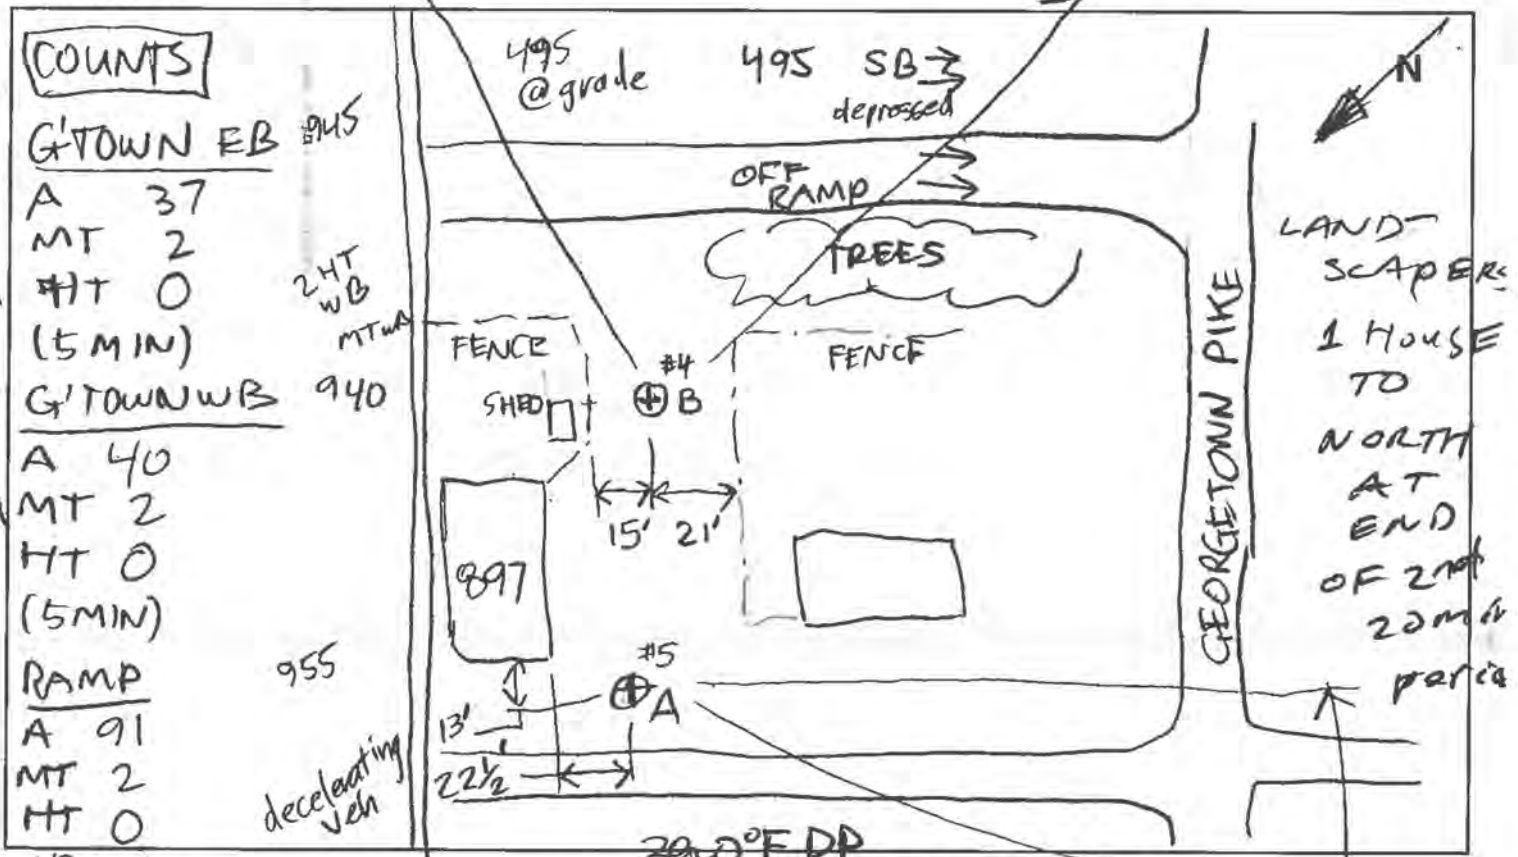 COUNTS
G'TOWN EB 945
A 37
MT 2
HT 0
(5 MIN)
2 HT
WB
G'TOWN WB 940
A 40
MT 2
HT 0
(5MIN)
RAMP 955
A 91
MT 2
HT 0
decelerating
veh
495
@grade
495 SB
depressed
OFF
RAMP
TREES
FENCE
FENCE
SHED
#4
B
15' 21'
897
#5
A
13'
22½'
GEORGETOWN PIKE
N
LAND-
SCAPERS
1 HOUSE
TO
NORTH
AT
END
OF 2nd
20 min